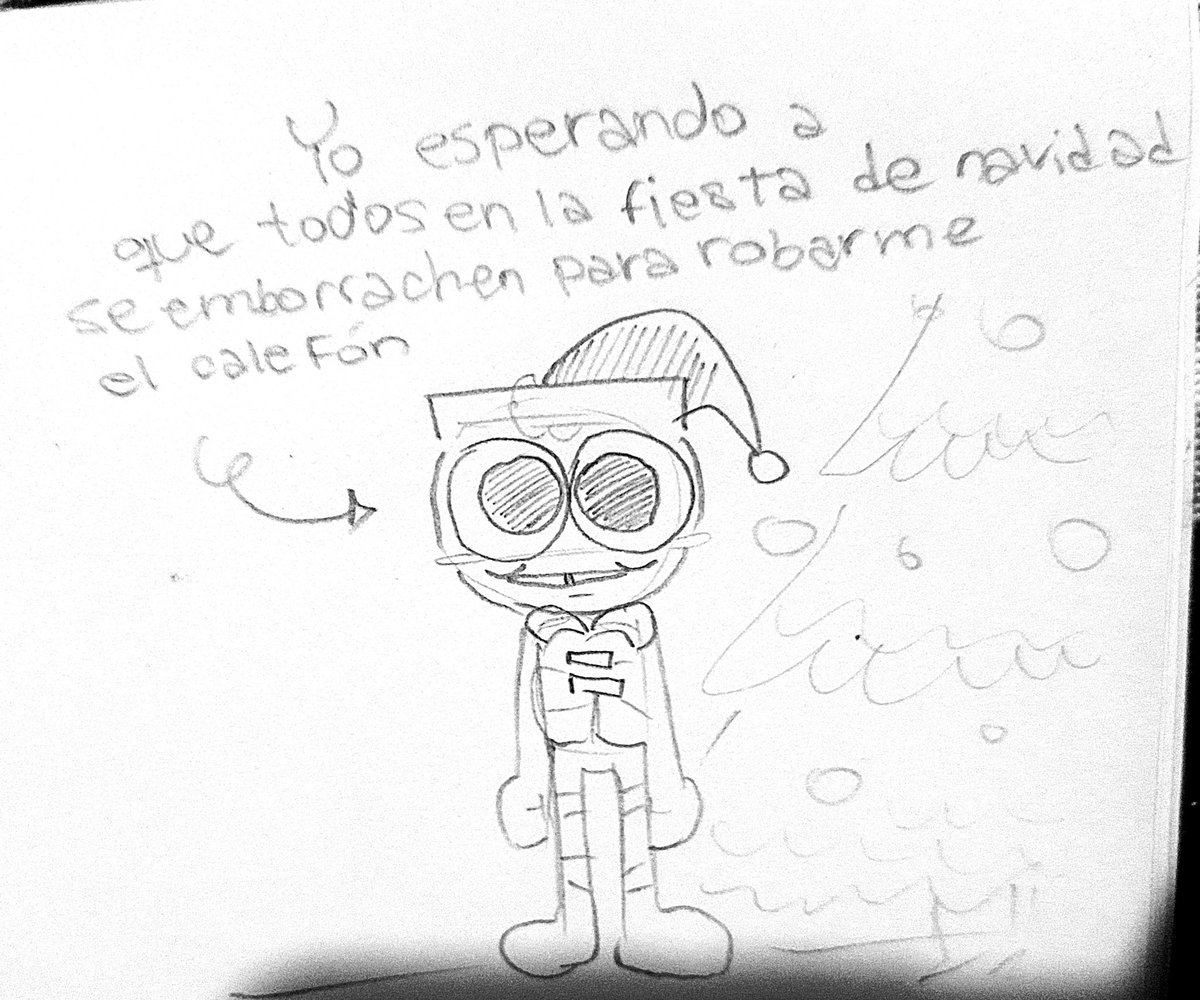 Yo esperando a
que todos en la fiesta de navidad
se emborrachen para robarme
el calefón